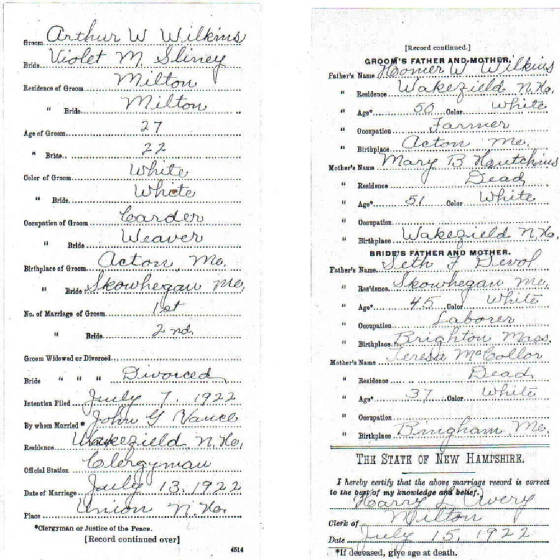 Groom Arthur W Wilkins
Bride Violet M. Sliney
Residence of Groom Milton
" Bride Milton
Age of Groom 27
" Bride 22
Color of Groom White
" Bride White
Occupation of Groom Carder
" Bride Weaver
Birthplace of Groom Acton, Me.
" Bride Skowhegan Me.
No. of Marriage of Groom 1st
" Bride 2nd
Groom Widowed or Divorced
Bride " " " Divorced
Intention Filed July 7, 1922
By whom Married* John G Vance
Residence Wakefield N.H.
Official Station Clergyman
Date of Marriage July 13, 1922
Place Union N.H.
*Clergyman or Justice of the Peace.
[Record continued over]
4514
[Record continued.]
GROOM'S FATHER AND MOTHER.
Father's Name Homer W Wilkins
" Residence Wakefield N.H.
" Age* 50 Color White
" Occupation Farmer
" Birthplace Acton Me.
Mother's Name Mary B Hutchins
" Residence Dead
" Age* 51 Color White
" Occupation
" Birthplace Wakefield N.H.
BRIDE'S FATHER AND MOTHER.
Father's Name Seth F Devol
" Residence Skowhegan Me.
" Age* 45 Color White
" Occupation Laborer
" Birthplace Brighton Mass.
Mother's Name Teresa McCollor
" Residence Dead
" Age* 37 Color White
" Occupation
" Birthplace Bringham Me.
THE STATE OF NEW HAMPSHIRE.
I hereby certify that the above marriage record is correct
to the best of my knowledge and belief.
Harry L Avery
Clerk of Milton
Date July 15, 1922
*If deceased, give age at death.